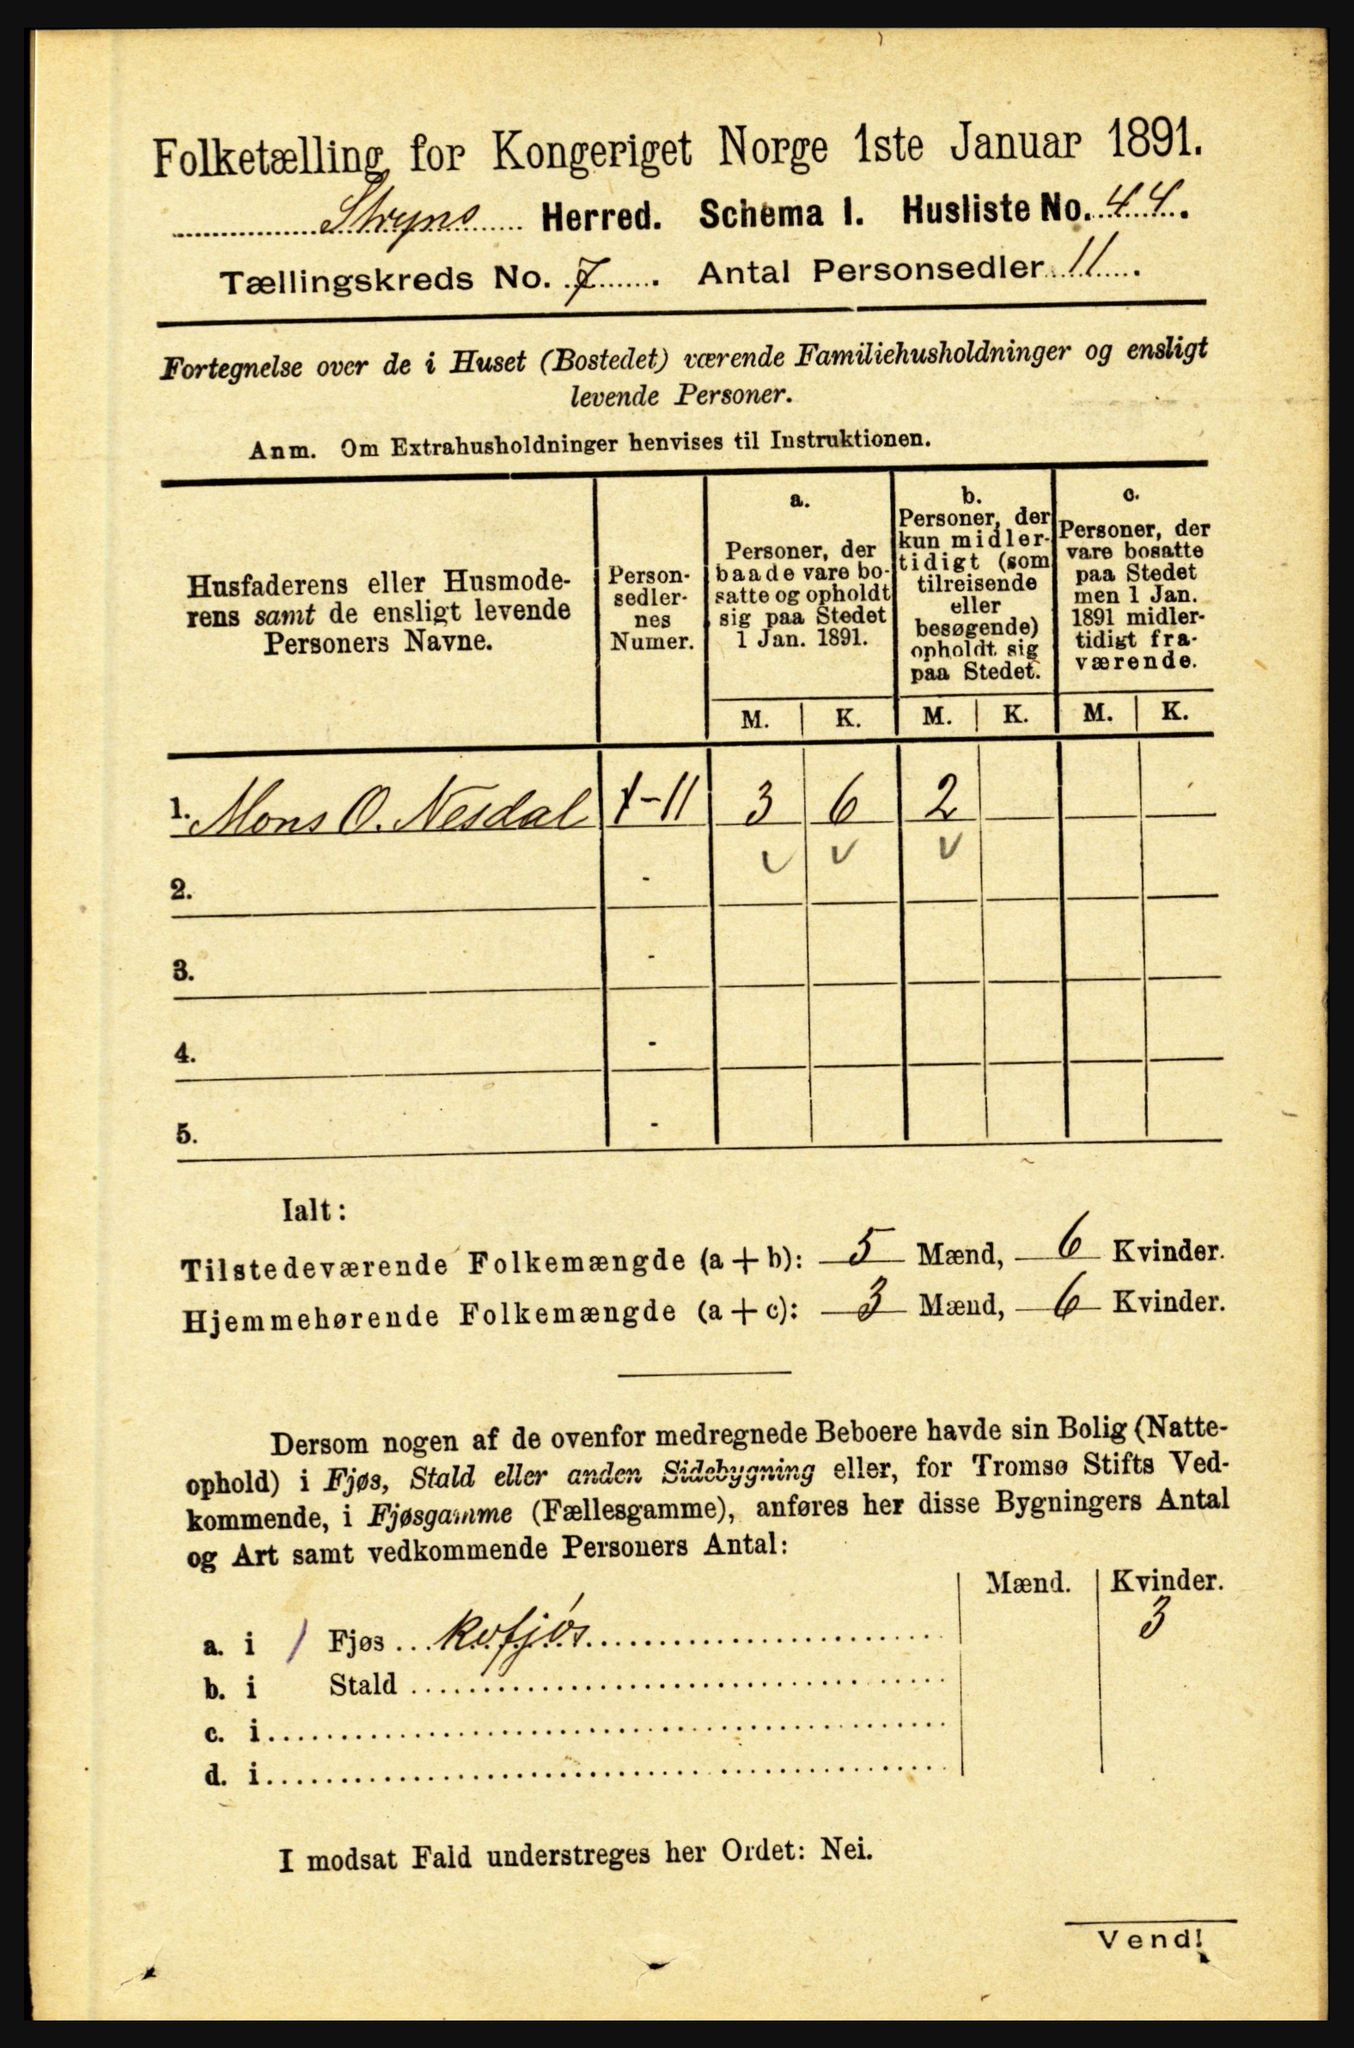 Folketælling for Kongeriget Norge 1ste Januar 1891.
Stryns Herred. Schema I. Husliste No. 44.
Tællingskreds No. 7. Antal Personsedler 11.
Fortegnelse over de i Huset (Bostedet) værende Familiehusholdninger og ensligt
levende Personer.
Anm. Om Extrahusholdninger henvises til Instruktionen.
Husfaderens eller Husmode-
rens samt de ensligt levende
Personers Navne.
Person-
sedler-
nes
Numer.
a.
Personer, der
baade vare bo-
satte og opholdt
sig paa Stedet
1 Jan. 1891.
b.
Personer, der
kun midler-
tidigt (som
tilreisende
eller
besøgende)
opholdt sig
paa Stedet.
c.
Personer, der
vare bosatte
paa Stedet
men 1 Jan.
1891 midler-
tidigt fra-
værende.
M. K. M. K. M. K.
1. Mons O. Nesdal 1-11 3 6 2
2. -
3. -
4. -
5. -
Ialt:
Tilstedeværende Folkemængde (a+b): 5 Mænd, 6 Kvinder.
Hjemmehørende Folkemængde (a+c): 3 Mænd, 6 Kvinder.
Dersom nogen af de ovenfor medregnede Beboere havde sin Bolig (Natte-
ophold) i Fjøs, Stald eller anden Sidebygning eller, for Tromsø Stifts Ved-
kommende, i Fjøsgamme (Fællesgamme), anføres her disse Bygningers Antal
og Art samt vedkommende Personers Antal:
Mænd. Kvinder.
a. i 1 Fjøs kufjøs 3
b. i Stald
c. i
d. i
I modsat Fald understreges her Ordet: Nei.
Vend!